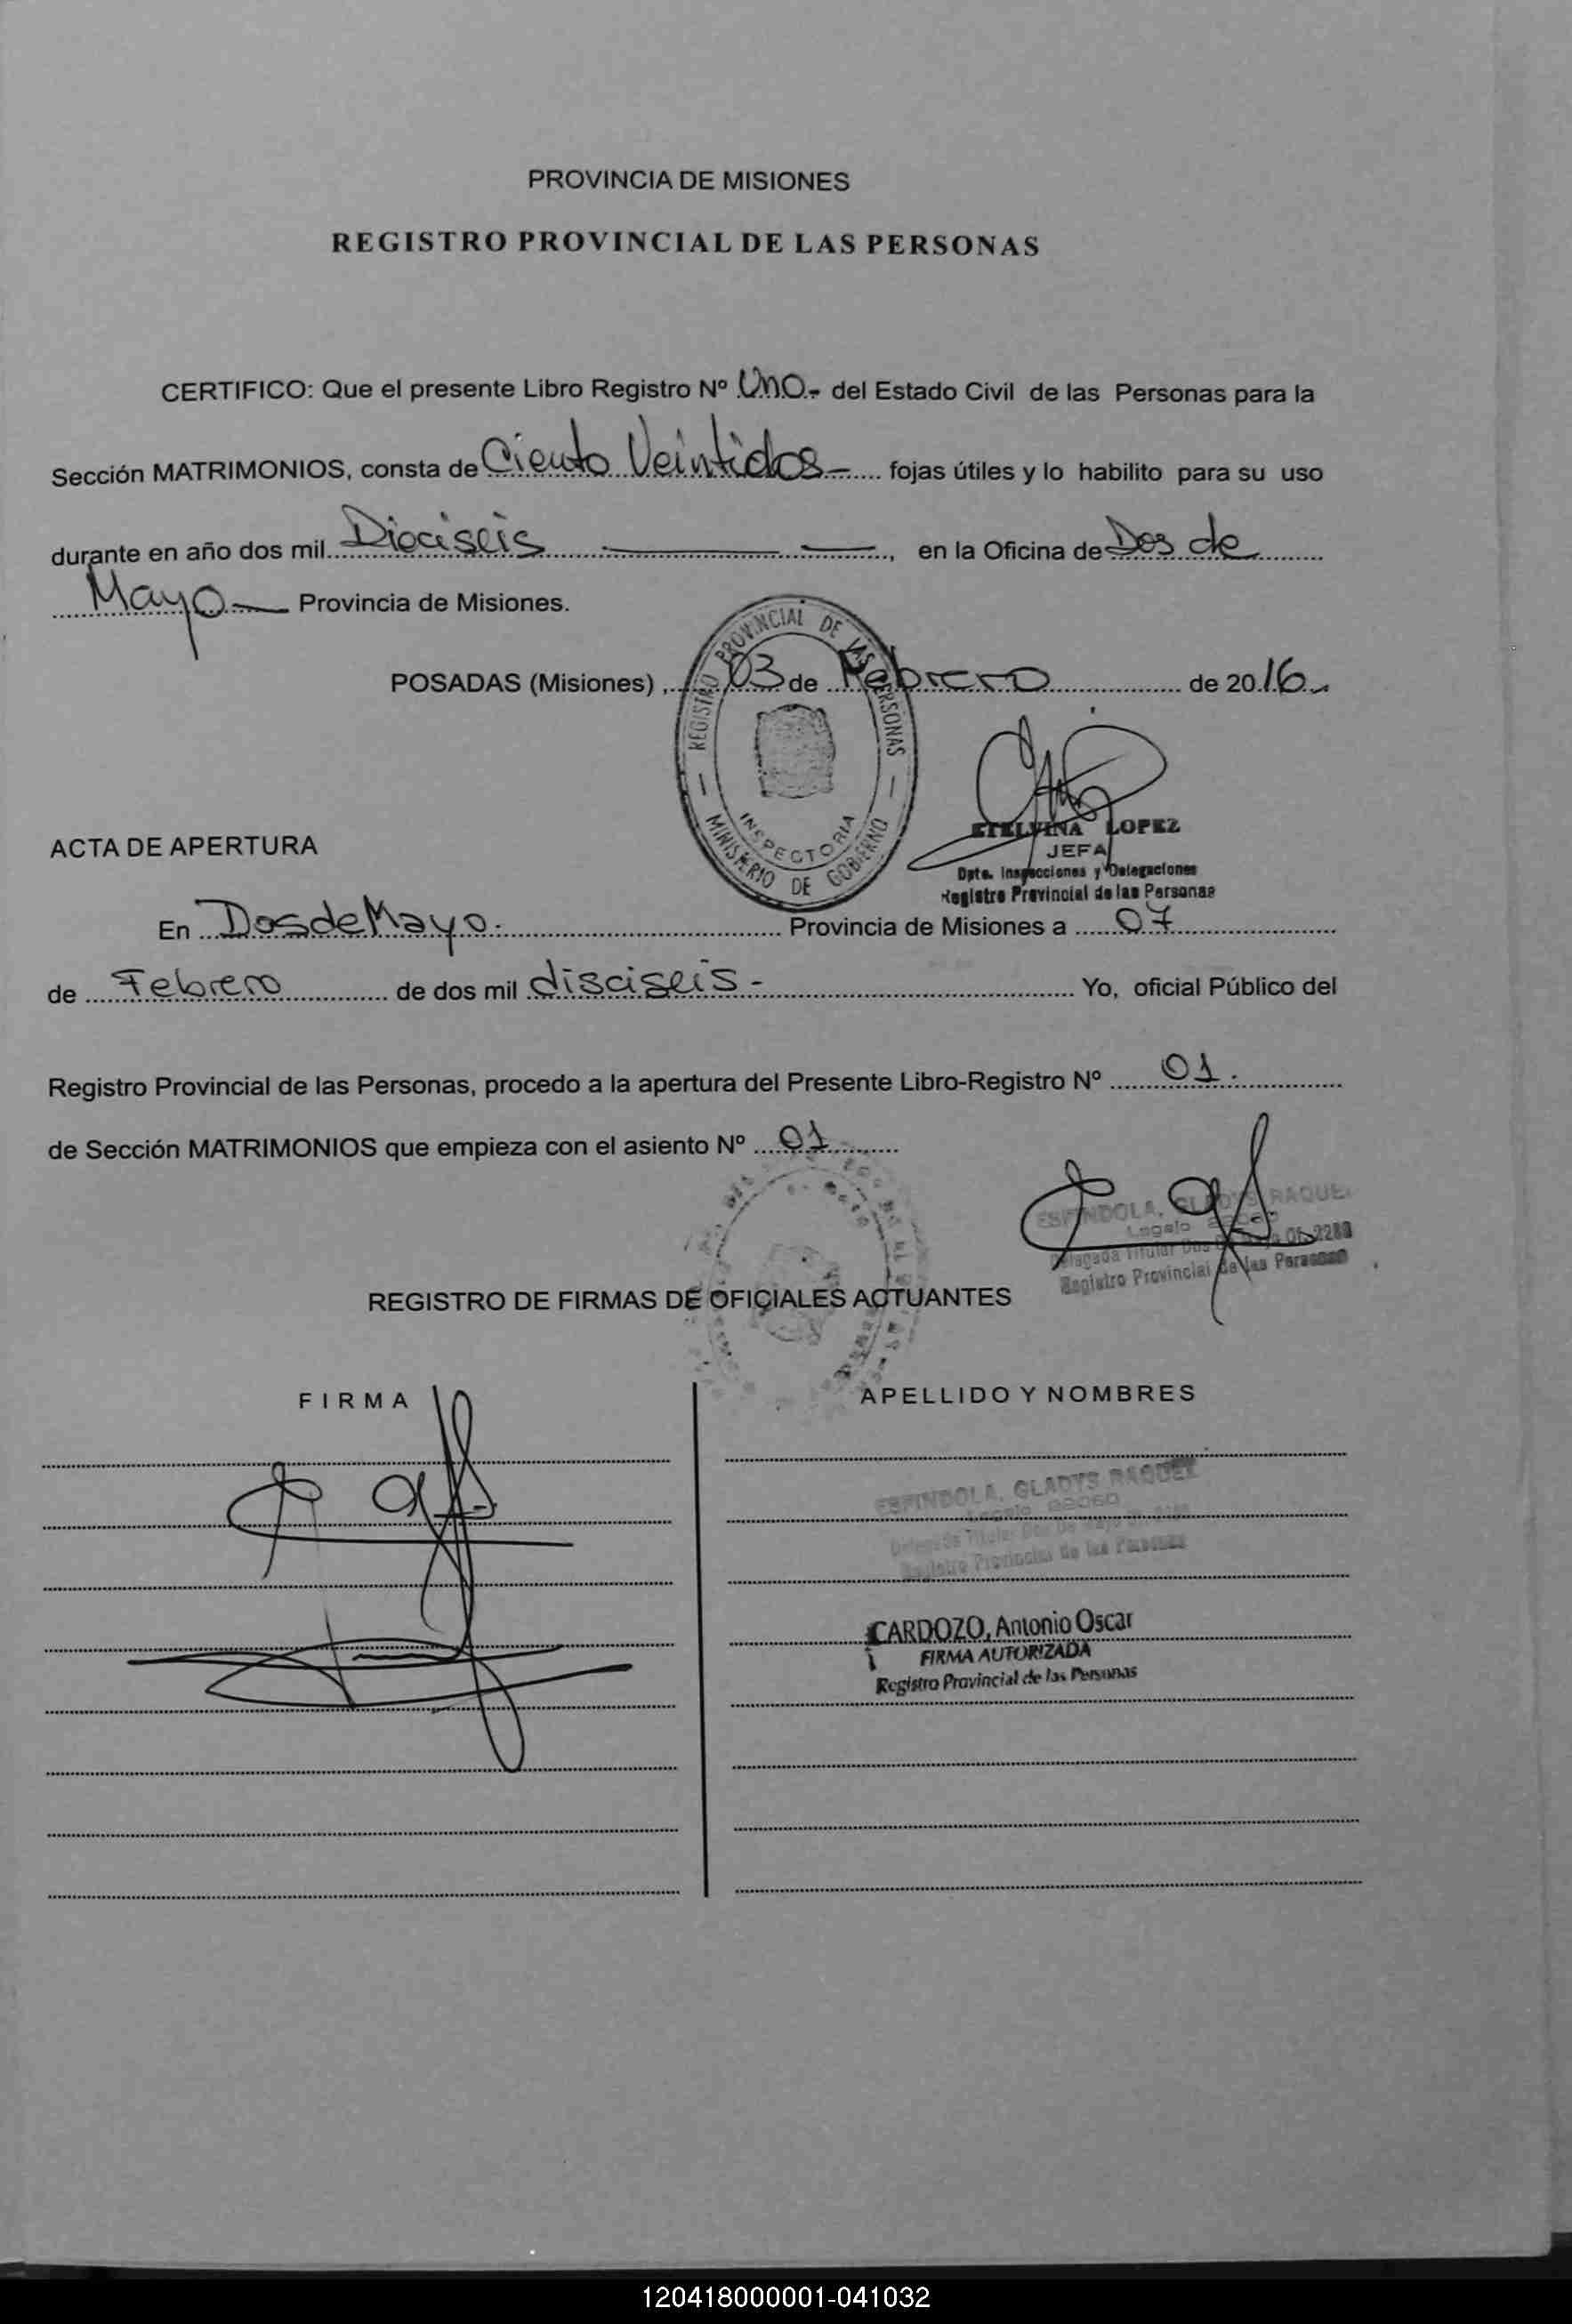 PROVINCIA DE MISIONES
REGISTRO PROVINCIAL DE LAS PERSONAS
CERTIFICO: Que el presente Libro Registro Nº Uno.- del Estado Civil de las Personas para la
Sección MATRIMONIOS, consta de Ciento Veintidos- fojas útiles y lo habilito para su uso
durante en año dos mil Dieciseis , en la Oficina de Dos de
Mayo Provincia de Misiones.
REGISTRO PROVINCIAL DE LAS PERSONAS
POSADAS (Misiones) , 03 de Febrero de 2016.
INSPECTORIA
MINISTERIO DE GOBIERNO
ETELVINA LOPEZ
JEFA
Dpto. Inspecciones y Delegaciones
Registro Provincial de las Personas
ACTA DE APERTURA
En Dos de Mayo. Provincia de Misiones a 07
de Febrero de dos mil disciseis - Yo, oficial Público del
Registro Provincial de las Personas, procedo a la apertura del Presente Libro-Registro Nº 01.
de Sección MATRIMONIOS que empieza con el asiento Nº 01
ESPINDOLA, GLADYS RAQUEL
Legajo
Delegada Titular Dos de Mayo Of. 2280
Registro Provincial de las Personas
REGISTRO DE FIRMAS DE OFICIALES ACTUANTES
FIRMA
APELLIDO Y NOMBRES
ESPINDOLA, GLADYS RAQUEL
Legajo
Delegada Titular Dos de Mayo
Registro Provincial de las Personas
CARDOZO, Antonio Oscar
FIRMA AUTORIZADA
Registro Provincial de las Personas
120418000001-041032